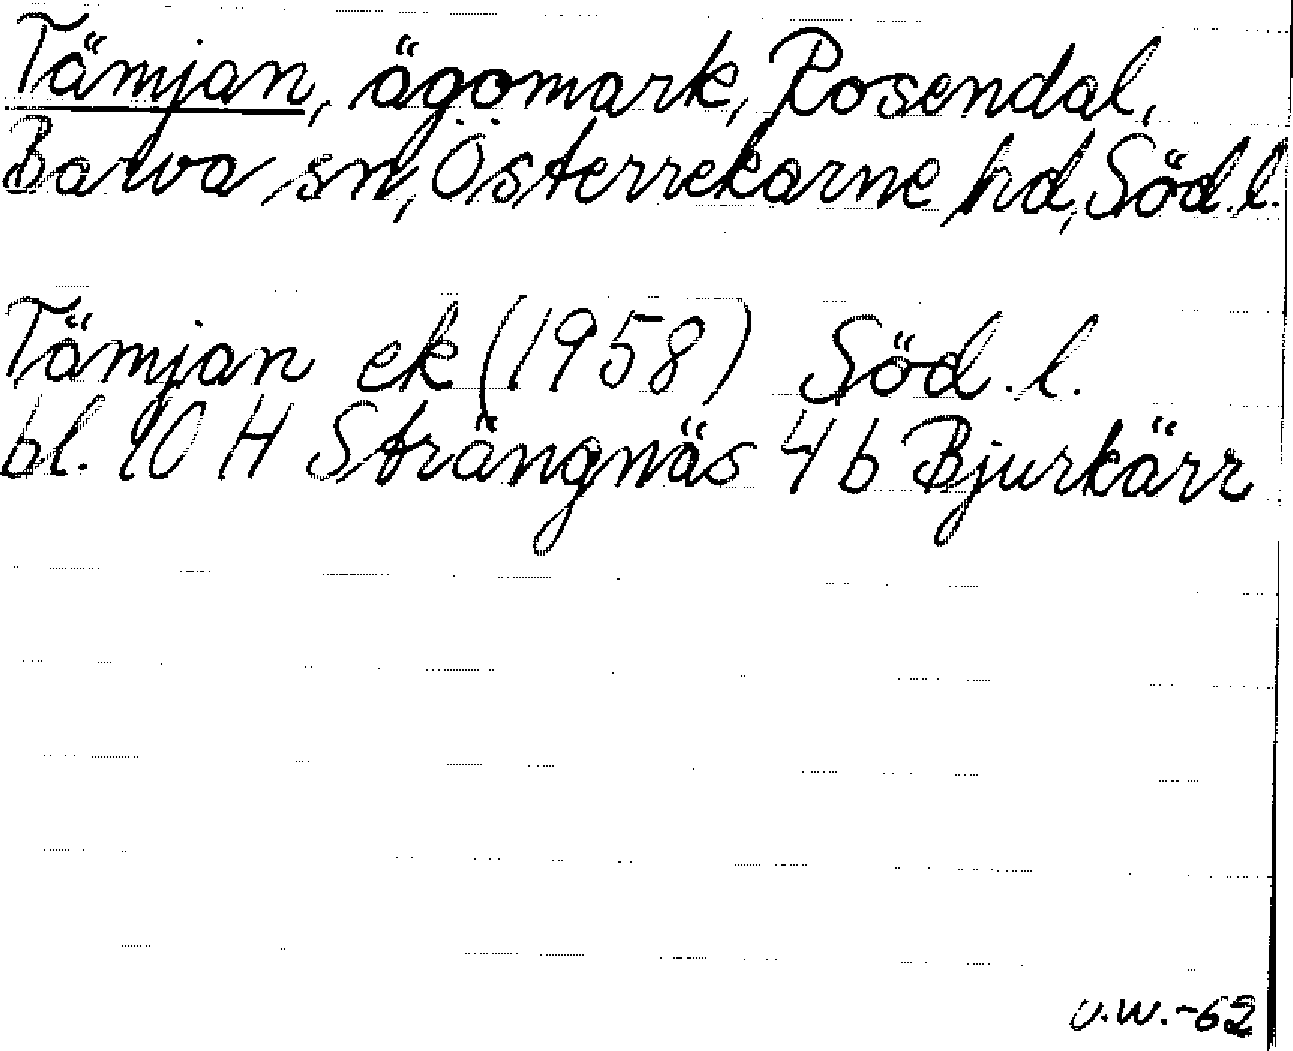 Tämjan, ägomark, Rosendal,
Barva sn, Österrekarne hd, Söd.l.
Tämjan ek (1958) Söd.l.
bl. 10 H Strängnäs 4 b Bjurkärr
U.W.-62